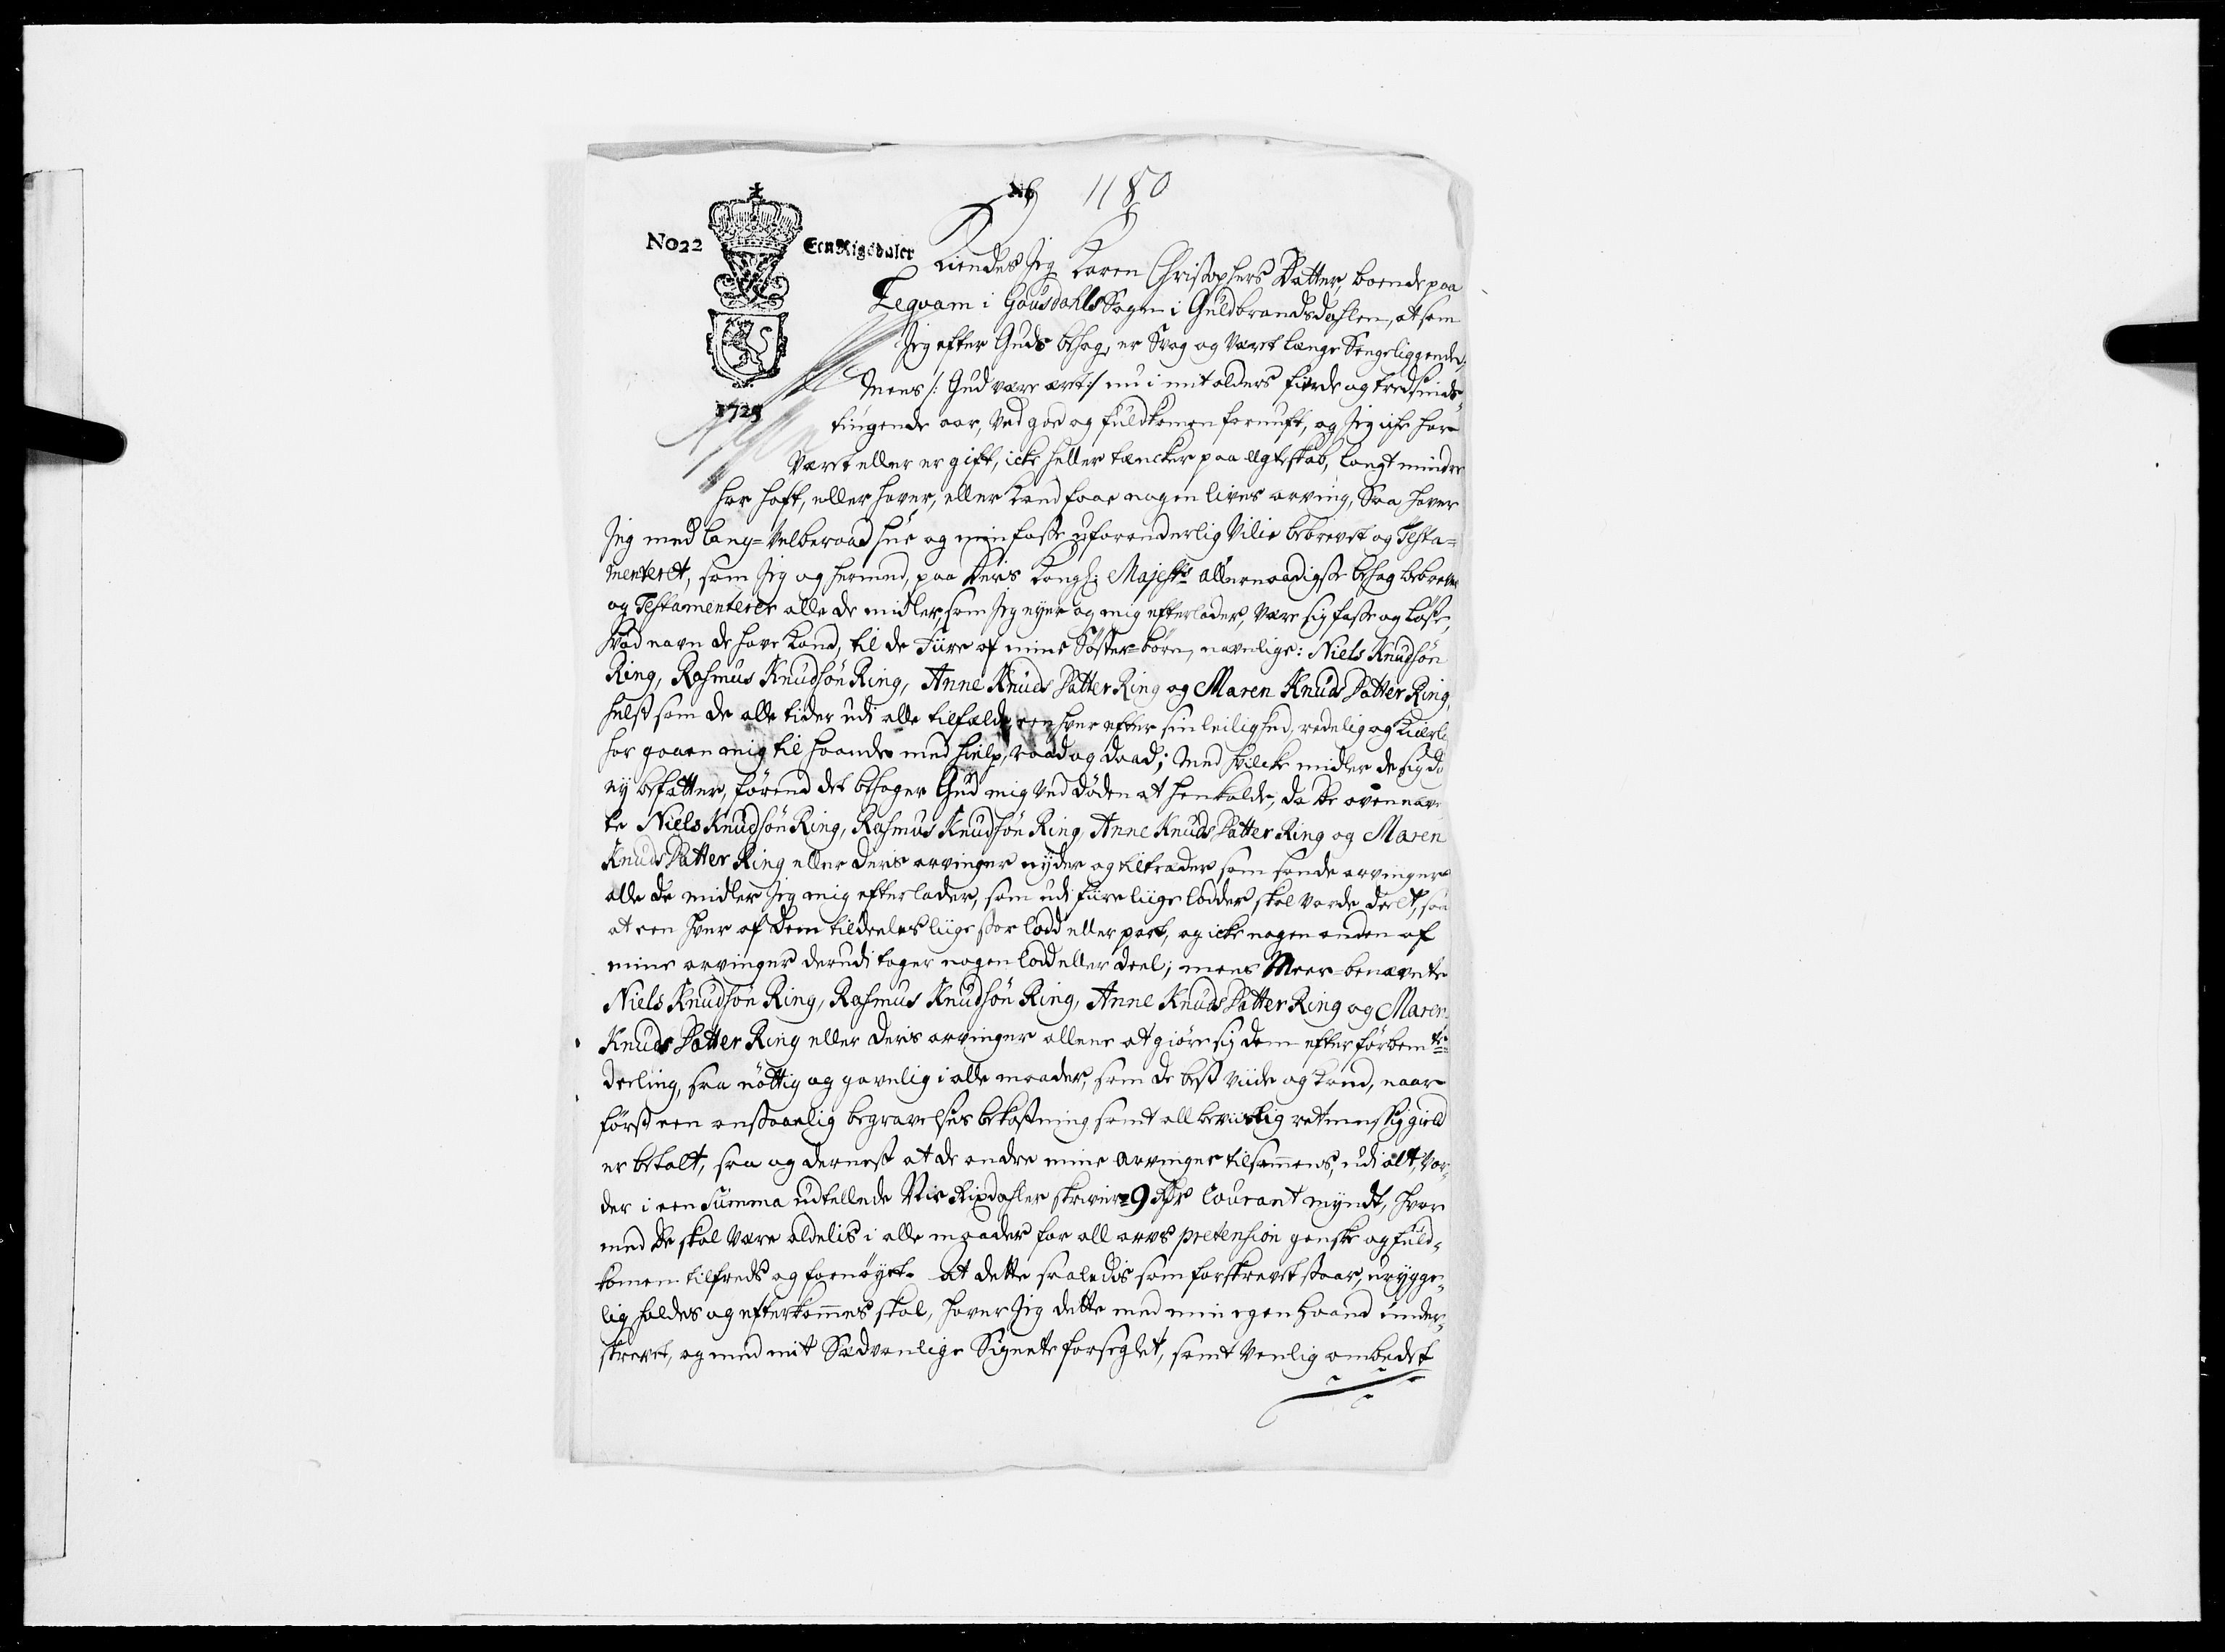 1180
No22
Een Rigsdaler
1725
Kiendes Jeg Karen Christophers Datter, boende paa
Segvam i Gousdahls Sogn i Guldbrandsdahlen, at som
Jeg efter Guds behag, er Svag og Været længe Sengeliggende,
Mens /: Gud være æret :/ nu i mit alders fierde og tredsinds-
tiugende aar, Ved goe og fuldkomen fornuft, og Jeg icke har
Været eller er gift, icke heller tæncker paa Egteskab, langt mindre
har haft, eller haver, eller Kand faae nogen livs arving, Saa haver
Jeg med lang-Velberaad hue og min faste uforanderlig Vilie bebrevet og Testa-
menteret, som Jeg og hermed, paa Deris Kongl: Majestts allernaadigste behag bebrever
og Testamenterer alle de midler, som Jeg eyer og mig efterlader, Være sig faste og Løse,
hvad navn de have Kand, til de Fiire af mine Söster-börn, navnlige: Niels Knudsön
Ring, Rasmus Knudsön Ring, Anne Knuds Datter Ring og Maren Knuds Datter Ring,
helst som de alle tider udi alle tilfælde, een hver efter sin leilighed, redelig og Kierli
har gaaen mig til haande med hielp, raad og daad; Med hvilcke midler de sig do
ey befatter, förend det behager Gud mig Ved Döden at henkalde, da De ovennæv
te Niels Knudsön Ring, Rasmus Knudsön Ring, Anne Knuds Datter Ring og Maren
Knuds Datter Ring eller Deris arvinger nyder og tiltræder som sande arvinger
alle de midler Jeg mig efterlader, som udi fiire liige lodder skal Vorde deelt, saa
at een hver af Dem tildeeles liige stor lodd eller part, og icke nogen anden af
mine arvinger derudi tager nogen lod eller deel; mens Meer-benævnte
Niels Knudsön Ring, Rasmus Knudsön Ring, Anne Knuds Datter Ring og Maren
Knuds Datter Ring eller Deris arvinger allene at giöre sig dem efter förbemte
Deeling, saa nöttig og gavnlig i alle maader, som de best viide og Kand, naar
först een anstændig begravelses bekostning samt all beviislig retmessig gield
er betalt, saa og dernest at de andre mine Arvinger tilsammens, udi alt, Vor-
der i een Summa udtellede Nie Rixdahler skriver 9 Rdr Courant myndt, hvor
med De skal Være aldelis i alle maader for all arvs pretension ganske og fuld-
komen tilfreds og fornöyet. At dette saaledis som forskrevet staar, urygge-
lig holdes og efterkommes skal, haver Jeg dette med min egen Haand under-
skrevet, og med mit Sædvanlige Signete forseglet, samt Venlig ombedet